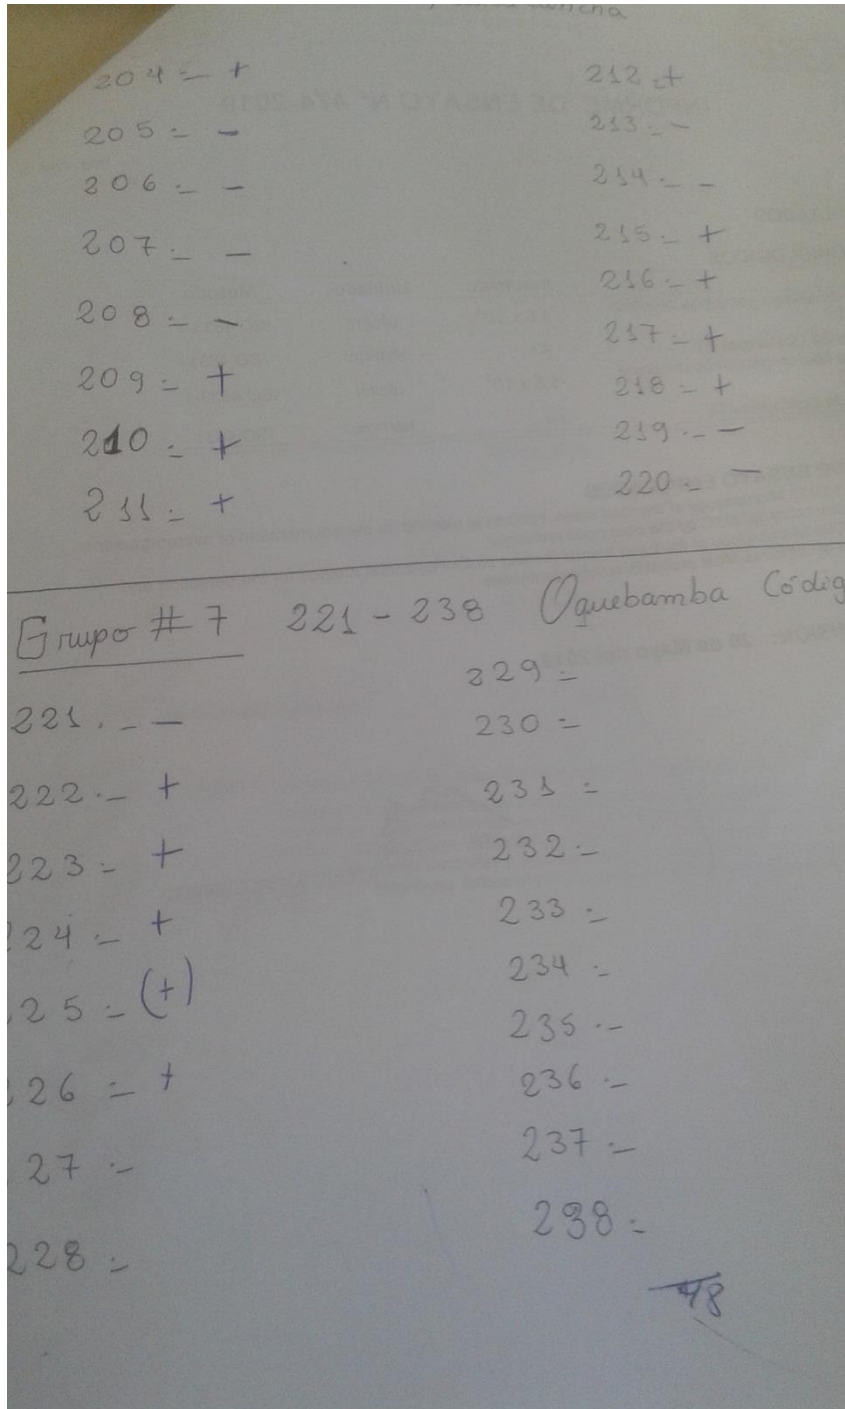 204.- +
205.- -
206.- -
207.- -
208.- -
209.- +
210.- +
211.- +
212.- +
213.- -
214.- -
215.- +
216.- +
217.- +
218.- +
219.- -
220.- -
Grupo # 7 221 - 238 Oquebamba Códig
221.- -
222.- +
223.- +
24.- +
25.- (+)
26.- +
27.-
228.-
229.-
230.-
231.-
232.-
233.-
234.-
235.-
236.-
237.-
238.-
48